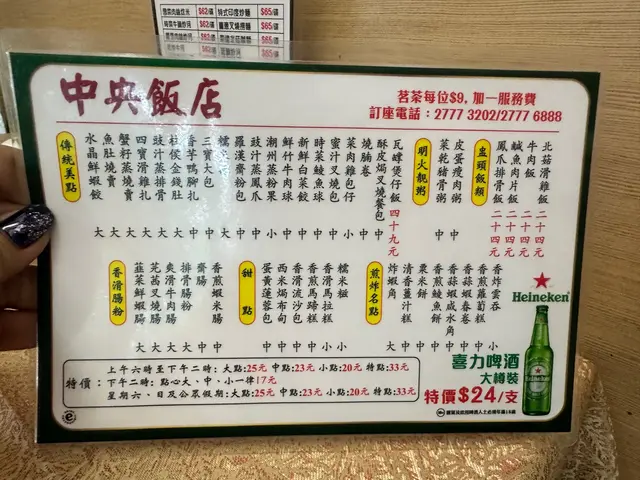 雪菜肉絲炆米 $62/碟 特式印度炒麵 $65/碟
中央飯店
茗茶每位$9, 加一服務費
訂座電話：2777 3202/2777 6888
傳統美點
水晶鮮蝦餃 大
魚肚燒賣 大
蟹籽蒸燒賣 大
四寶滑雞扎 大
豉汁蒸排骨 大
柱侯金錢肚 大
香芋鴨腳扎 中
三寶大包 中
糯米
羅漢齋粉包 中
豉汁蒸鳳爪 中
潮州蒸粉果 小
鮮竹牛肉球 中
新鮮白菜餃 中
時菜鯪魚球 中
蜜汁叉燒包 中
菜肉雞包仔 小
燒腩卷 中
酥皮焗叉燒餐包 中
瓦罉煲仔飯 四十九元
明火靚粥
菜乾豬骨粥 中
皮蛋瘦肉粥 中
盅頭飯類
鳳爪排骨飯 二十四元
鹹魚肉片飯 二十四元
牛肉飯 二十四元
北菇滑雞飯 二十四元
香滑腸粉
韮菜鮮蝦腸 大
芫茜叉燒腸 大
爽滑牛肉腸 大
排骨腸粉 大
齋腸 中
香煎蝦米腸 中
甜點
蛋黃蓮蓉包 中
西米焗布甸 中
香滑流沙包 中
香煎馬蹄糕 中
香滑馬拉糕 小
糯米糍 小
煎炸名點
炸蝦角 大
清香薑汁糕 中
粟米餅 中
香煎鯪魚餅 中
香蒜蝦咸水角 小
香蒜蝦春卷 中
香煎蘿蔔糕 中
香炸雲吞 小
Heineken
喜力啤酒
大樽裝
特價$24/支
特價：
上午六時至下午二時：大點:25元 中點:23元 小點:20元 特點:33元
下午二時：點心大、中、小一律17元
星期六、日及公眾假期：大點:25元 中點:23元 小點:20元 特點:33元